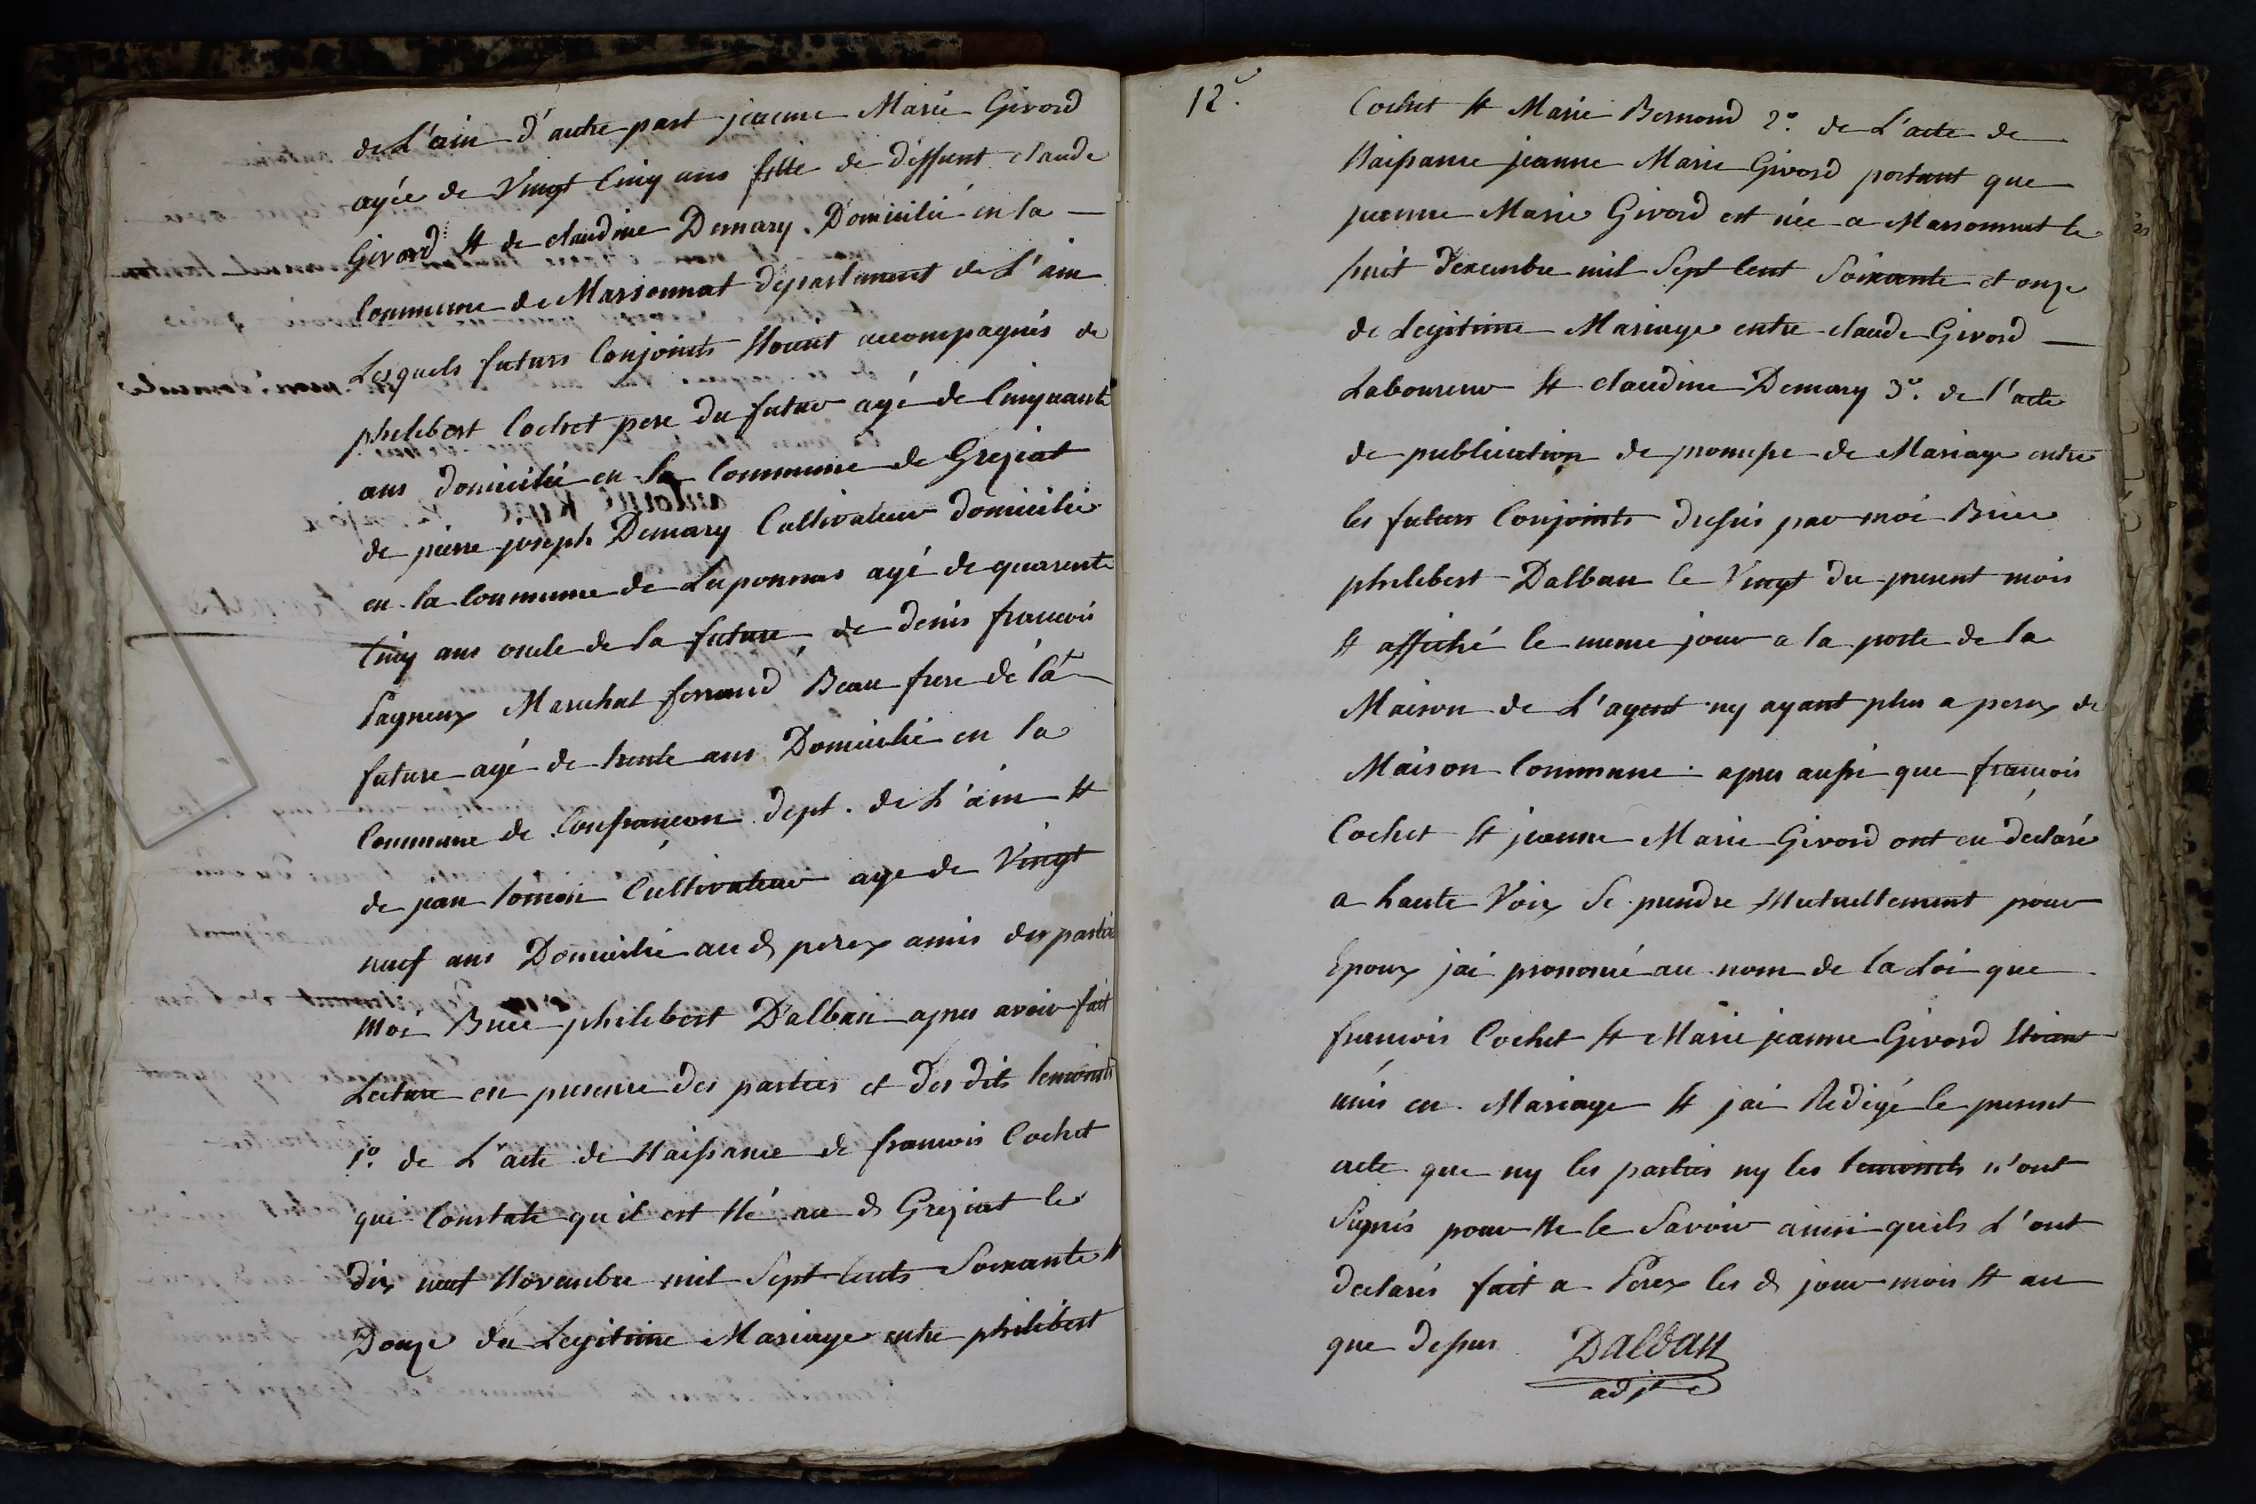 de L'ain d'autre part jeanne Marie Givord
agée de Vingt Cinq ans fille de deffunt claude
Givord & de claudine Demary. Domicilié en la
Commune de Marsonnat département de L'ain
Lesquels futurs Conjoints Étoint accompagnés de
philibert Cochet pere du futur agé de Cinquante
ans domicilié en la Commune de Greziat
de pierre joseph Demary Cultivateur domicilié
en la Commune de Luponnas agé de quarente
Cinq ans oncle de la future de denis francois
Pagneux Marechal ferrand Beau frere de la
future agé de trente ans Domicilié en la
Commune de Confrancon dept. de L'ain &
de jean Cultivateur age de Vingt
neuf ans Domicilié au d perex amis des parties
Moi Brice philibert Dalban apres avoir fait
Lecture en presence des parties et des dits temoints
1º. de L'acte de Naissance de francois Cochet
qui Constate qu'il est Né au d Greziat le
dix neuf Novembre mil Sept Cents Soixante &
Douze du Legitime Mariage entre philibert
12e.
Cochet & Marie Bernond 2º. de L'acte de
Naissance jeanne Marie Givord portant que
jeanne Marie Givord est née a Marsonnat le
huit Decembre mil Sept Cent Soixante et onze
de Legitime Mariage entre claude Givord
Laboureur & claudine Demary 3º. de l'acte
de publication de promesse de Mariage entre
les futurs Conjoints dressés par moi Brice
philibert Dalban le Vingt du present mois
& affiché le meme jour a la porte de la
Maison de L'agent ny ayant plus a perex de
Maison Commune. apres aussi que francois
Cochet & jeanne Marie Givord ont eu déclaré
a haute Voix Se prendre Mutuellement pour
Epoux jai prononcé au nom de la Loi que
francois Cochet & Marie jeanne Givord Étoient
unis en Mariage & jai Redigé le present
acte que ny les parties ny les temoints n'ont
Signés pour Ne le Savoir ainsi quils L'ont
declarés fait a Perex les d jour mois & an
que dessus Dalban
adjt